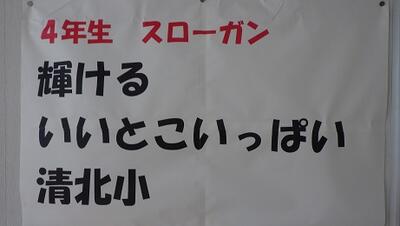 4年生　スローガン
輝ける
いいとこいっぱい
清北小